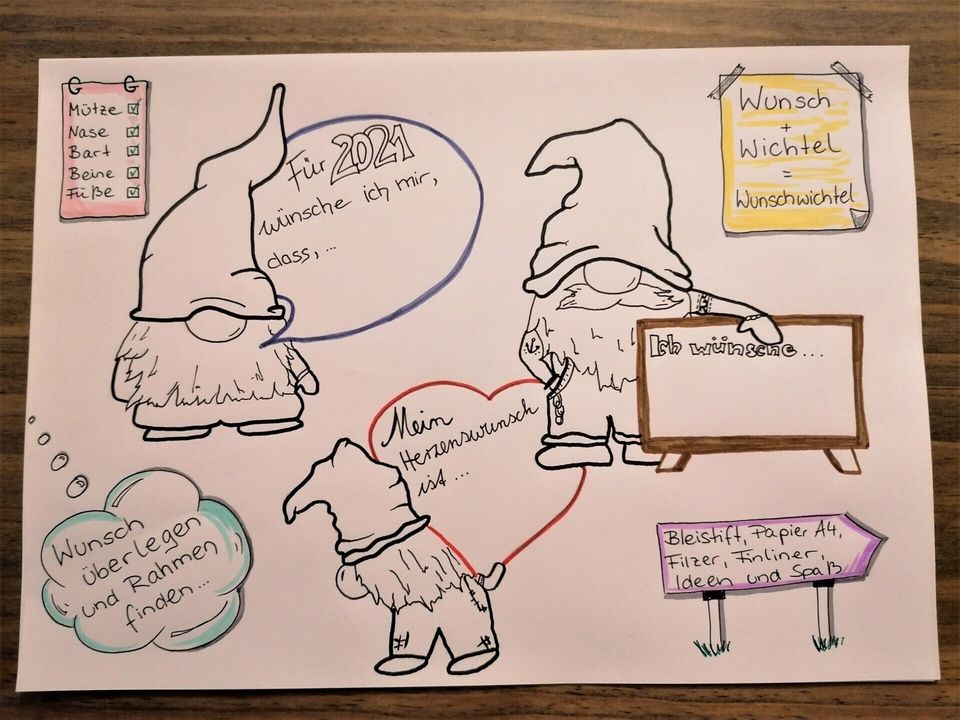 Mütze
Nase
Bart
Beine
Füße
Für 2021
wünsche ich mir,
dass, ...
Wunsch
+
Wichtel
=
Wunschwichtel
Ich wünsche ...
Mein
Herzenswunsch
ist ...
Wunsch
überlegen
und Rahmen
finden...
Bleistift, Papier A4,
Filzer, Finliner,
Ideen und Spaß